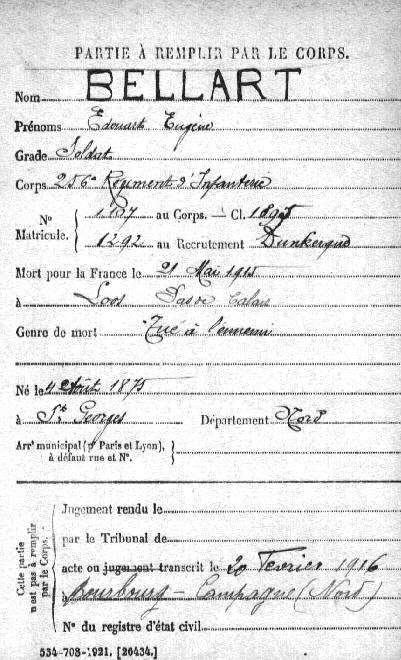 PARTIE À REMPLIR PAR LE CORPS.
Nom BELLART
Prénoms Edouard Eugène
Grade Soldat
Corps 256e Régiment d'Infanterie
N° Matricule. { 1167 au Corps. — Cl. 1895
1292 au Recrutement Dunkerque
Mort pour la France le 21 Mai 1915
à Loos Pas de Calais
Genre de mort Tué à l'ennemi
Né le 4 Août 1875
à St Georges Département Nord
Arrt municipal (pr Paris et Lyon), à défaut rue et N°. }
Cette partie n'est pas à remplir par le Corps.
Jugement rendu le
par le Tribunal de
acte ou jugement transcrit le 20 Février 1916
à Bourbourg – Campagne (Nord)
N° du registre d'état civil
534-708-1921. [26434.]